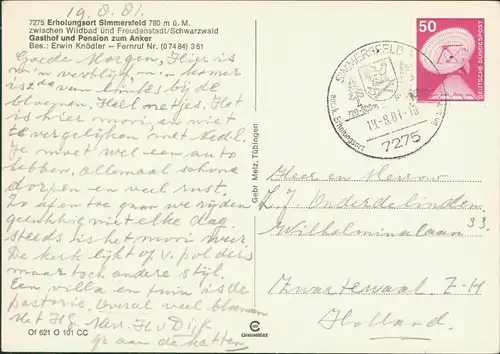 19.8.81.
7275 Erholungsort Simmersfeld 780 m ü. M.
zwischen Wildbad und Freudenstadt/Schwarzwald
Gasthof und Pension zum Anker
Bes.: Erwin Knödler – Fernruf Nr. (07484) 361
Goede Morgen, Hier is
m'n verblijf, m'n kamer
is van links bij de
bloemen. Heel netjes. Het
is hier mooi en niet
te vergelijken met Nedl.
Je moet wel een auto
hebben. allemaal schone
dorpen en veel rust.
Zo af en toe gaan we rijden
gelukkig niet elke dag.
steeds is het mooi weer.
De kerk lijkt op v. polders
maar toch andere stijl.
Een villa en tuin is de
pastorie. Overal veel bloemen
Met Hg. Mevr. H v Dijk
gr aan de katten
Of 621 O 101 CC
Gebr. Metz, Tübingen
CHROMOLUX
SIMMERSFELD
720-880m
anerk. Erholungsort
19.-8.81-16
7275
50
DEUTSCHE BUNDESPOST
Heer en Mevrouw
L.J. Onderdelinden
Wilhelminalaan 33.
Zwartewaal Z-H
Holland.